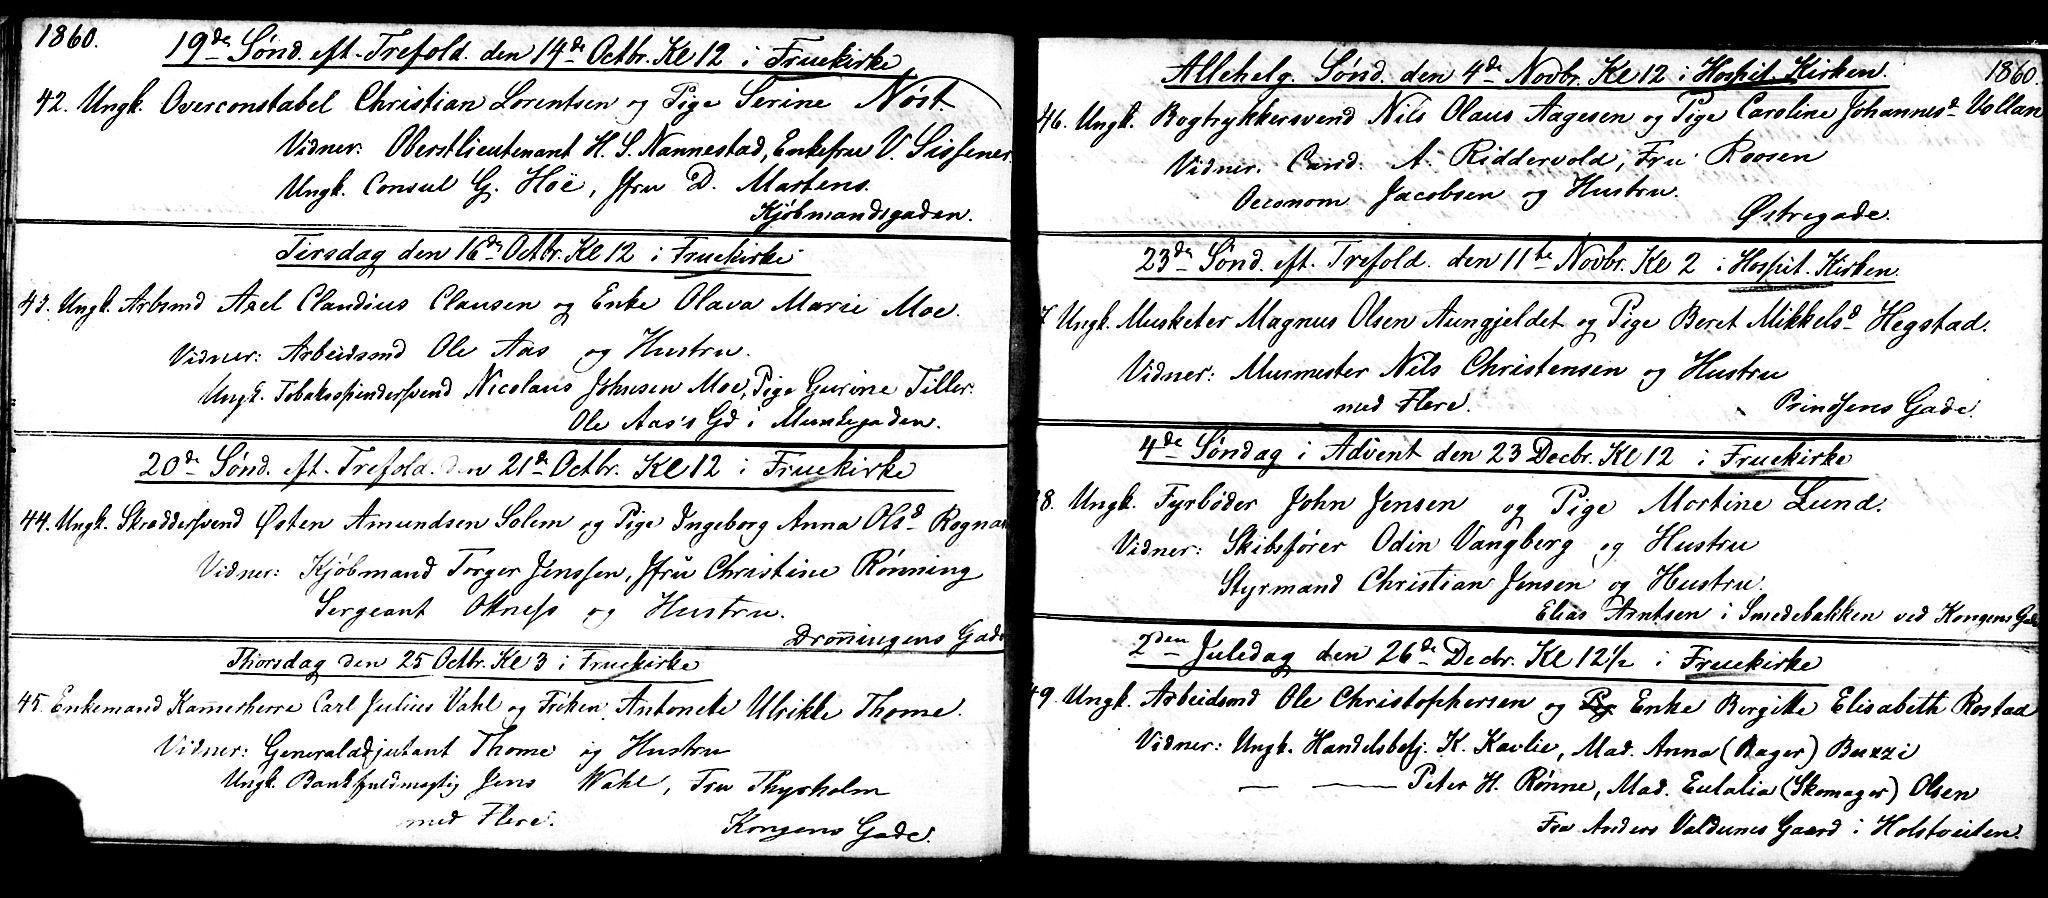 1860.
19de Sønd. eft. Trefold. den 14de Octbr. Kl 12 i Fruekirke
42. Ungk. Overconstabel Christian Lorentsen og Pige Serine Nøst.
Vidner: Oberstlieutenant H. S. Nannestad, Enkefru V. Sissener
Ungk. Consul G. Höe, Jfru D. Martens.
Kjøbmandsgaden.
Tirsdag den 16de Octbr. Kl 12 i Fruekirke
43. Ungk. Arbsmd Axel Claudius Clausen og Enke Olava Marie Moe.
Vidner: Arbeidsmd Ole Aas og Hustru.
Ungk. Tobaksspindersvend Nicolaus Johnsen Moe, Pige Gurine Tiller.
Ole Aas's Gd i Munkegaden.
20de Sønd. eft. Trefold. den 21de Octbr. Kl 12 i Fruekirke
44. Ungk. Skræddersvend Østen Amundsen Solem og Pige Ingeborg Anna Olsd Rognan
Vidner: Kjøbmand Torger Jenssen, Jfru Christine Rønning
Sergeant Ottness og Hustru.
Dronningens Gade
Thorsdag den 25 Octbr. Kl 3 i Fruekirke
45. Enkemand Kammerherre Carl Julius Vahl og Frøken Antonete Ulrikke Thome.
Vidner: Generaladjutant Thome og Hustru
Ungk. Bankfuldmægtig Jens Wahl, Fru Thyrholm
med Flere.
Kongens Gade.
Allehelg. Sønd. den 4de Novbr. Kl 12 i Hospit. Kirken.
1860.
46. Ungk. Bogtrykkersvend Nils Olaus Aagesen og Pige Caroline Johannesd Vollan
Vidner. Cand. A. Riddervold, Fru Roosen
Oeconom Jacobsen og Hustru.
Østregade.
23de Sønd. eft. Trefold. den 11te Novbr. Kl 2 i Hospit. Kirken.
7 Ungk. Musketer Magnus Olsen Aungjeldet og Pige Beret Mikkelsd Hegstad.
Vidner: Murmester Nils Christensen og Hustru
med Flere.
Prindsens Gade.
4de Søndag i Advent den 23 Decbr. Kl 12 i Fruekirke
8. Ungk. Fyrbøder John Jensen og Pige Mortine Lund.
Vidner: Skibsfører Odin Vangberg og Hustru
Styrmand Christian Jensen og Hustru.
Elias Arntsen i Smedebakken ved Kongens Gade
2den Juledag den 26de Decbr. Kl 12 1/2 i Fruekirke
49. Ungk. Arbeidsmd Ole Christophersen og Enke Bergitte Elisabeth Rostad
Vidner: Ungk. Handelsbetj. K. Kavlie, Mad. Anna (Bager) Buzzi
— — Peter H. Rønne, Mad. Eulalia (Skomager) Olsen
Fra Anders Valdunes Gaard i Holstveiten.